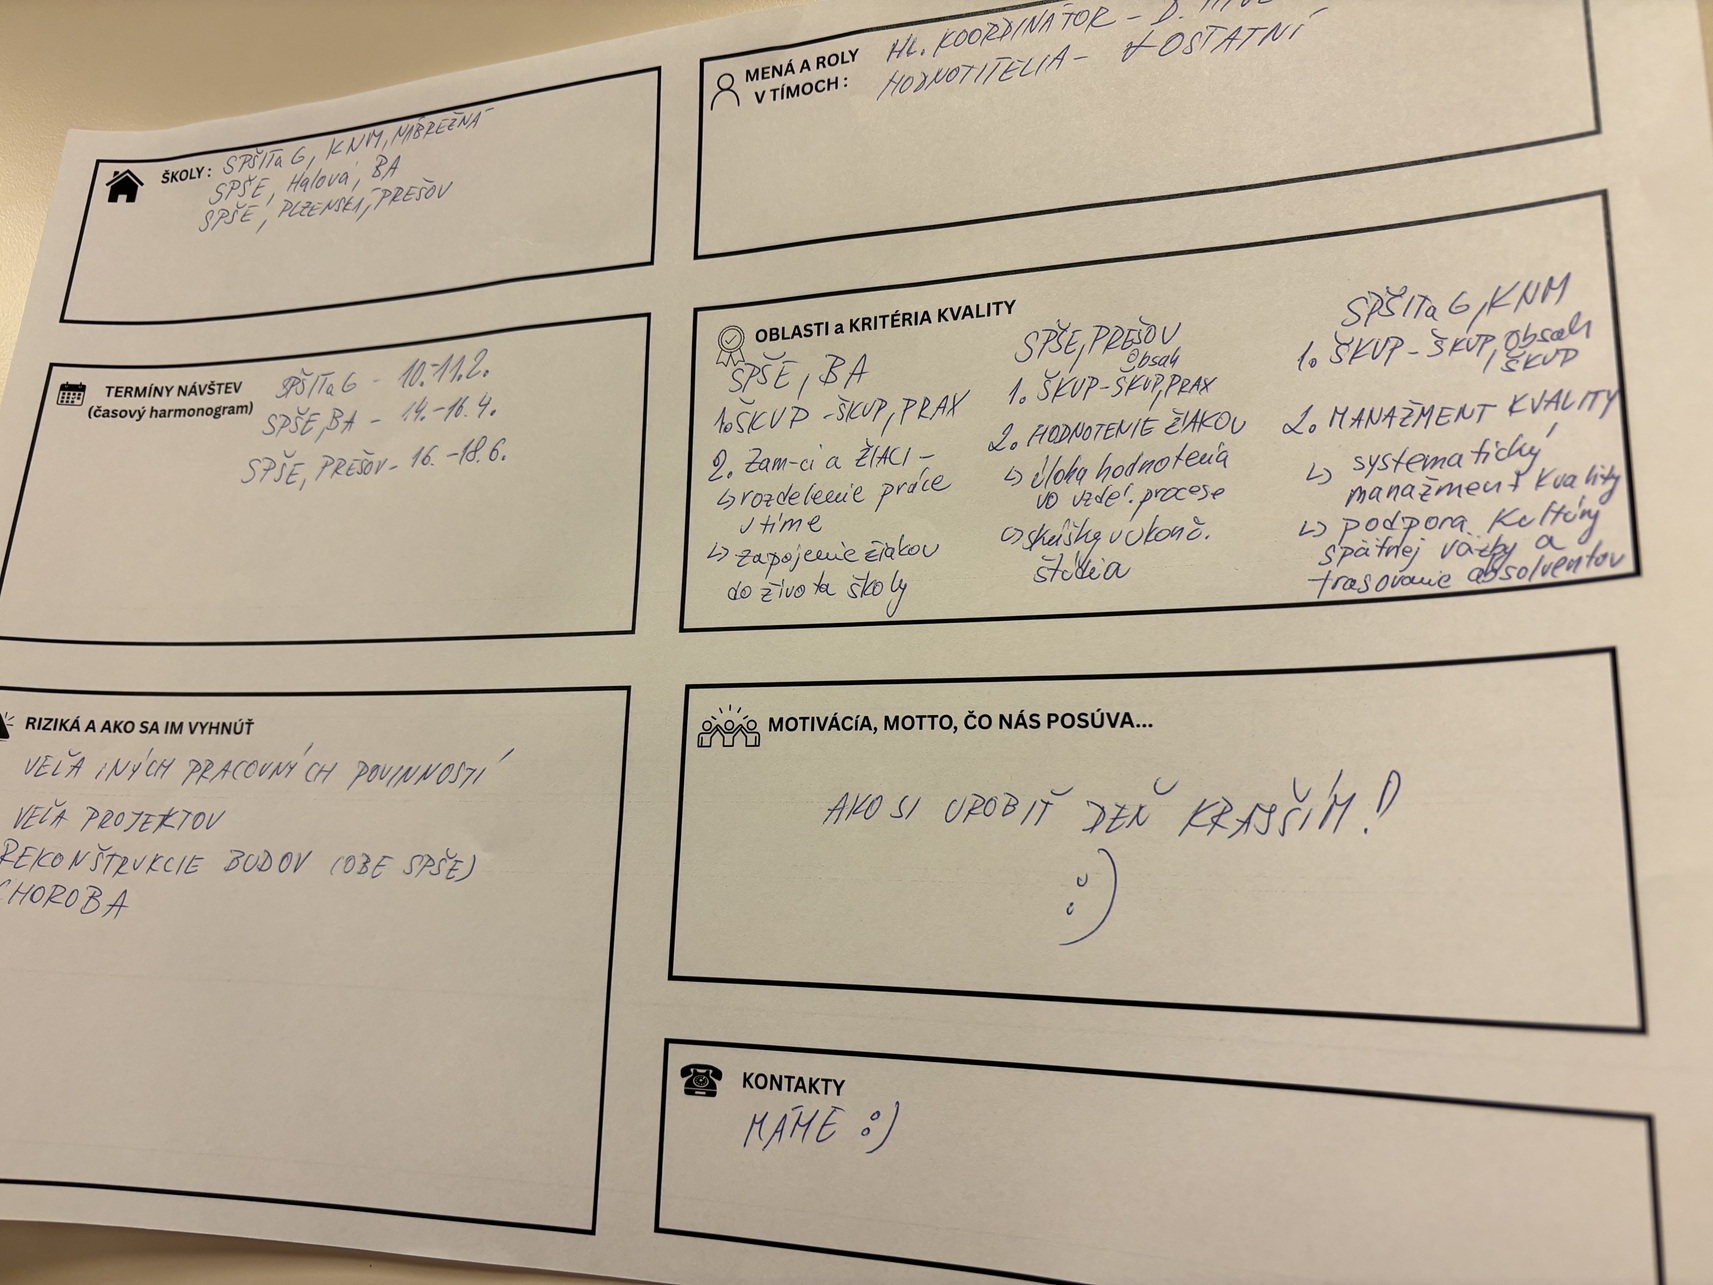 ŠKOLY : SPŠITaG, KNM, NÁBREŽNÁ
SPŠE, Hálová, BA
SPŠE, PLZENSKÁ, PREŠOV
MENÁ A ROLY
V TÍMOCH :
HL. KOORDINÁTOR - D.
HODNOTITELIA - + OSTATNÍ
TERMÍNY NÁVŠTEV
(časový harmonogram)
SPŠITaG - 10.-11.2.
SPŠE, BA - 14.-16.4.
SPŠE, PREŠOV - 16.-18.6.
OBLASTI a KRITÉRIA KVALITY
SPŠE, BA
1. ŠKUP - ŠKUP, PRAX
2. Zam-ci a ŽIACI -
↳ rozdelenie práce
v tíme
↳ zapojenie žiakov
do života školy
SPŠE, PREŠOV
Obsah
1. ŠKUP - ŠKUP, PRAX
2. HODNOTENIE ŽIAKOV
↳ úloha hodnotenia
vo vzdel. procese
↳ skúšky v ukonč.
štúdia
SPŠITaG, KNM
1. ŠKUP - ŠKUP, Obsah
ŠKUP
2. MANAŽMENT KVALITY
↳ systematický
manažment kvality
↳ podpora kultúry
spätnej väzby a
trasovanie absolventov
RIZIKÁ A AKO SA IM VYHNÚŤ
VEĽA INÝCH PRACOVNÝCH POVINNOSTÍ
VEĽA PROJEKTOV
REKONŠTRUKCIE BUDOV (OBE SPŠE)
CHOROBA
MOTIVÁCíA, MOTTO, ČO NÁS POSÚVA...
AKO SI UROBIŤ DEŇ KRAJŠÍM!
:)
KONTAKTY
MÁME :)